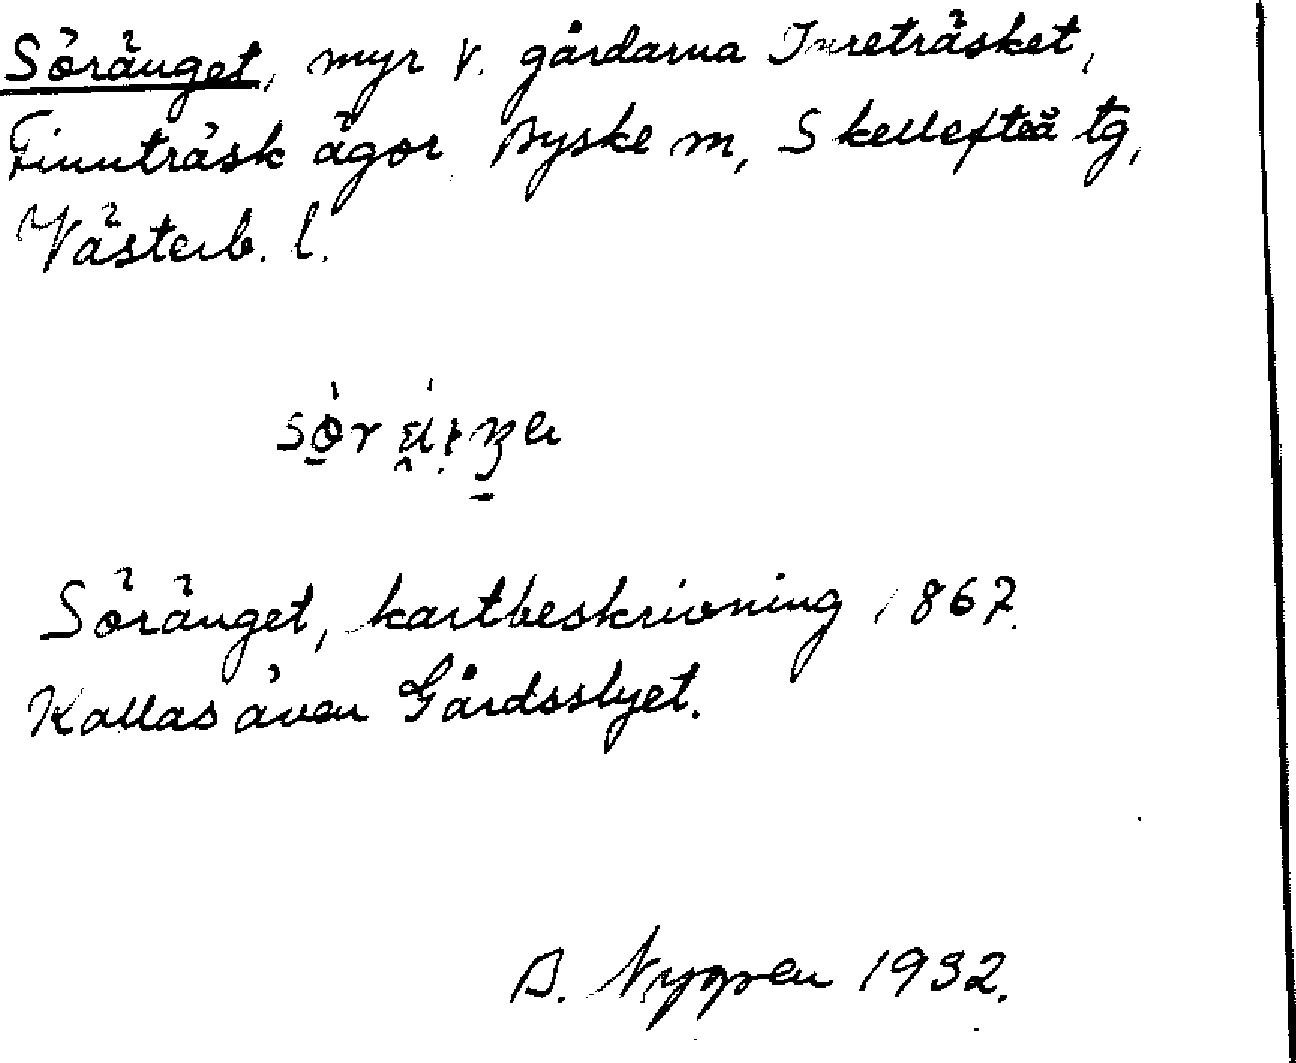 Söränget, myr v. gårdarna Inreträsket,
Finnträsk ägor Byske m, Skellefteå tg,
Västerb. l.
Söränget, kartbeskrivning 1867.
Kallas även Gårdsslyet.
B. Nygren 1932.